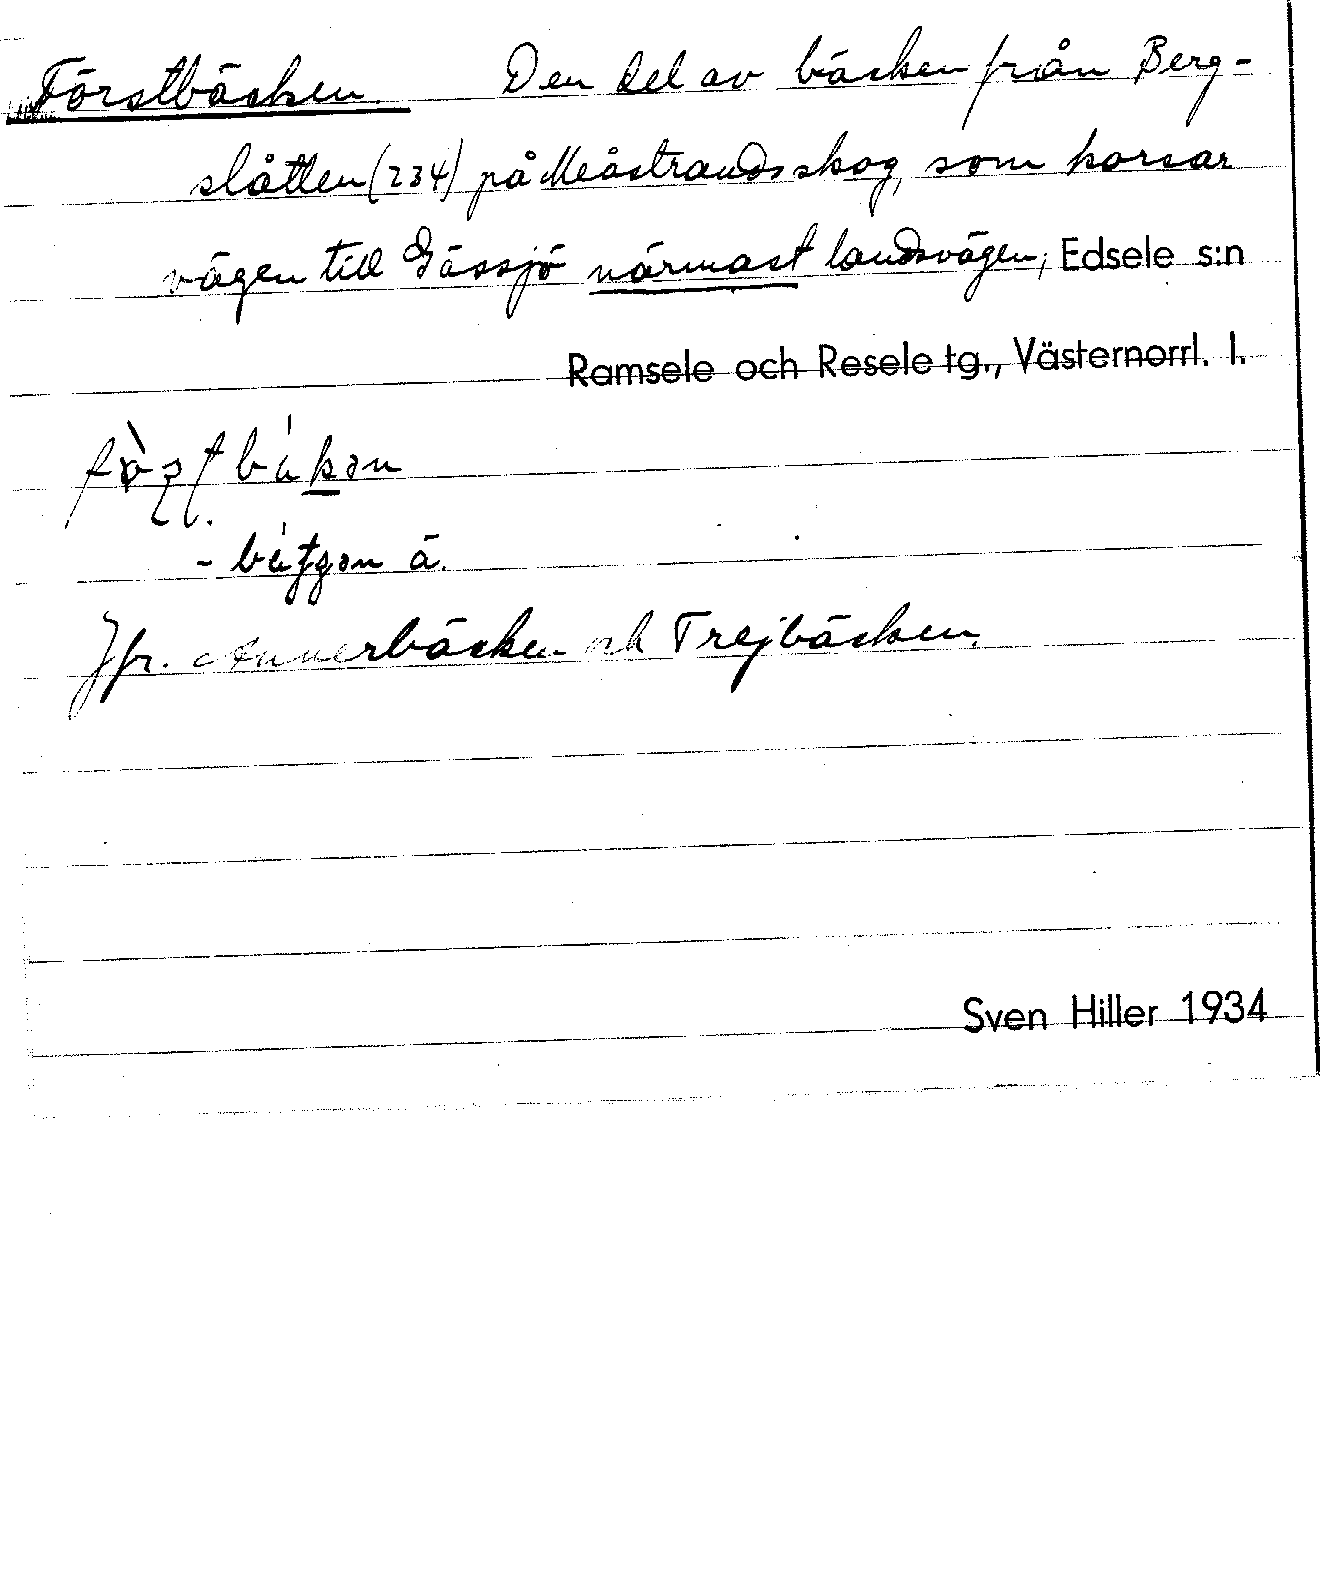 Förstbäcken. Den del av bäcken från Berg-
slåtten (234) på Meåstrandsskog, som korsar
vägen till Gässjö närmast landsvägen, Edsele s:n
Ramsele och Resele tg., Västernorrl. l.
Jfr. Annerbäcken och Trejbäcken.
Sven Hiller 1934